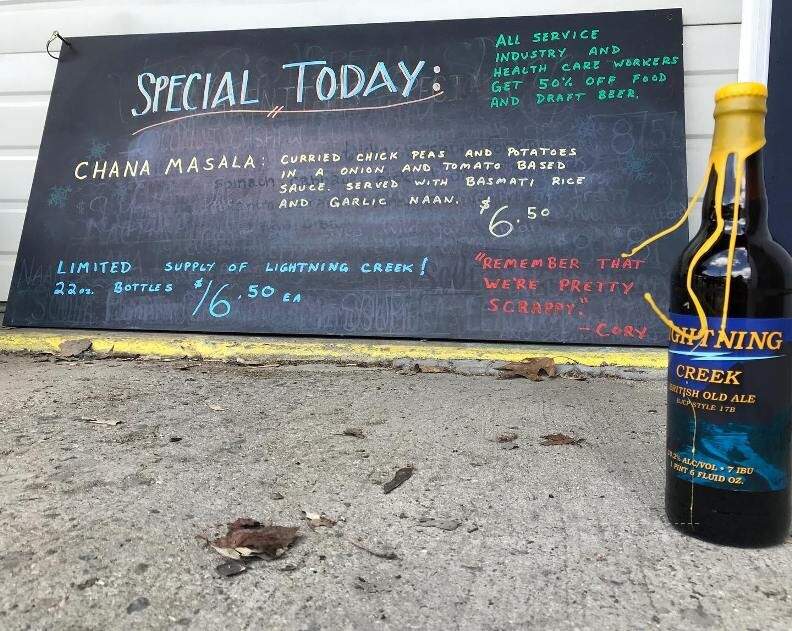 SPECIAL TODAY:
ALL SERVICE
INDUSTRY AND
HEALTH CARE WORKERS
GET 50% OFF FOOD
AND DRAFT BEER.
CHANA MASALA: CURRIED CHICK PEAS AND POTATOES
IN A ONION AND TOMATO BASED
SAUCE. SERVED WITH BASMATI RICE
AND GARLIC NAAN. $6.50
LIMITED SUPPLY OF LIGHTNING CREEK!
22oz. BOTTLES $16.50 EA
"REMEMBER THAT
WE'RE PRETTY
SCRAPPY."
- CORY
GHTNING
CREEK
BRITISH OLD ALE
STYLE 17B
ALC/VOL • 7 IBU
1 PINT 6 FLUID OZ.